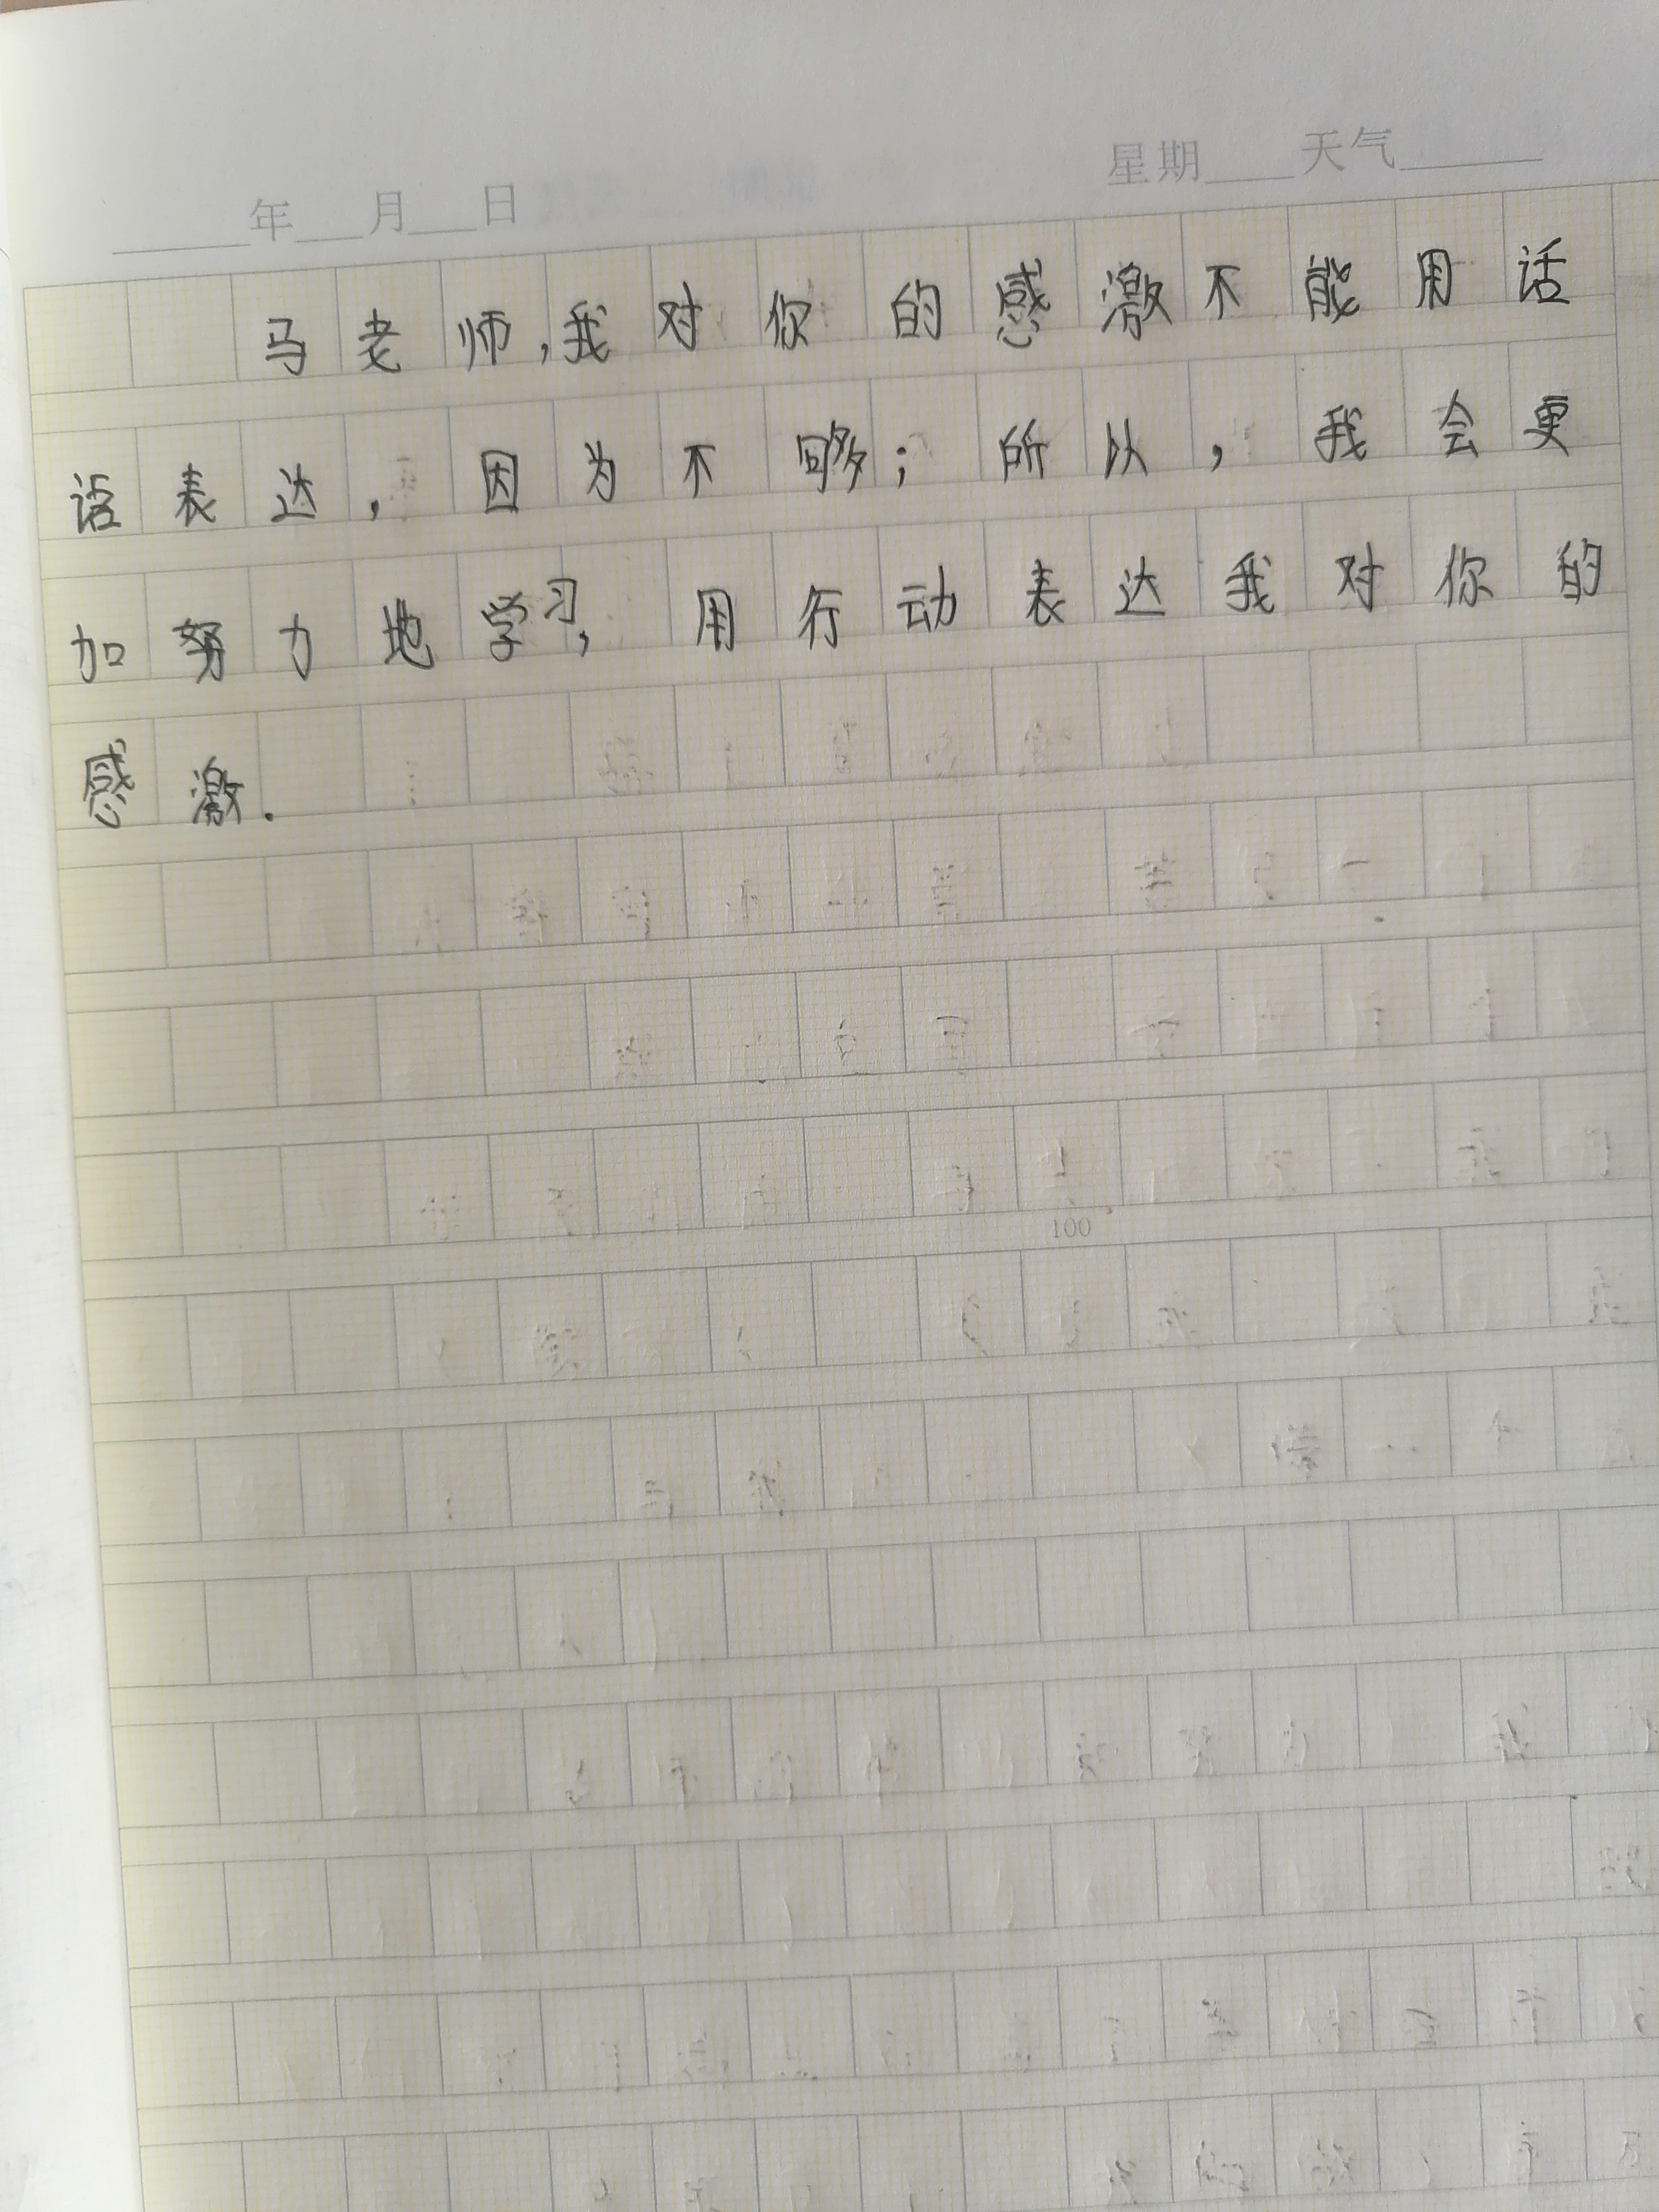 ____年___月___日 星期____天气______
马老师,我对你的感激不能用话
语表达,因为不够;所以,我会更
加努力地学习,用行动表达我对你的
感激.
100